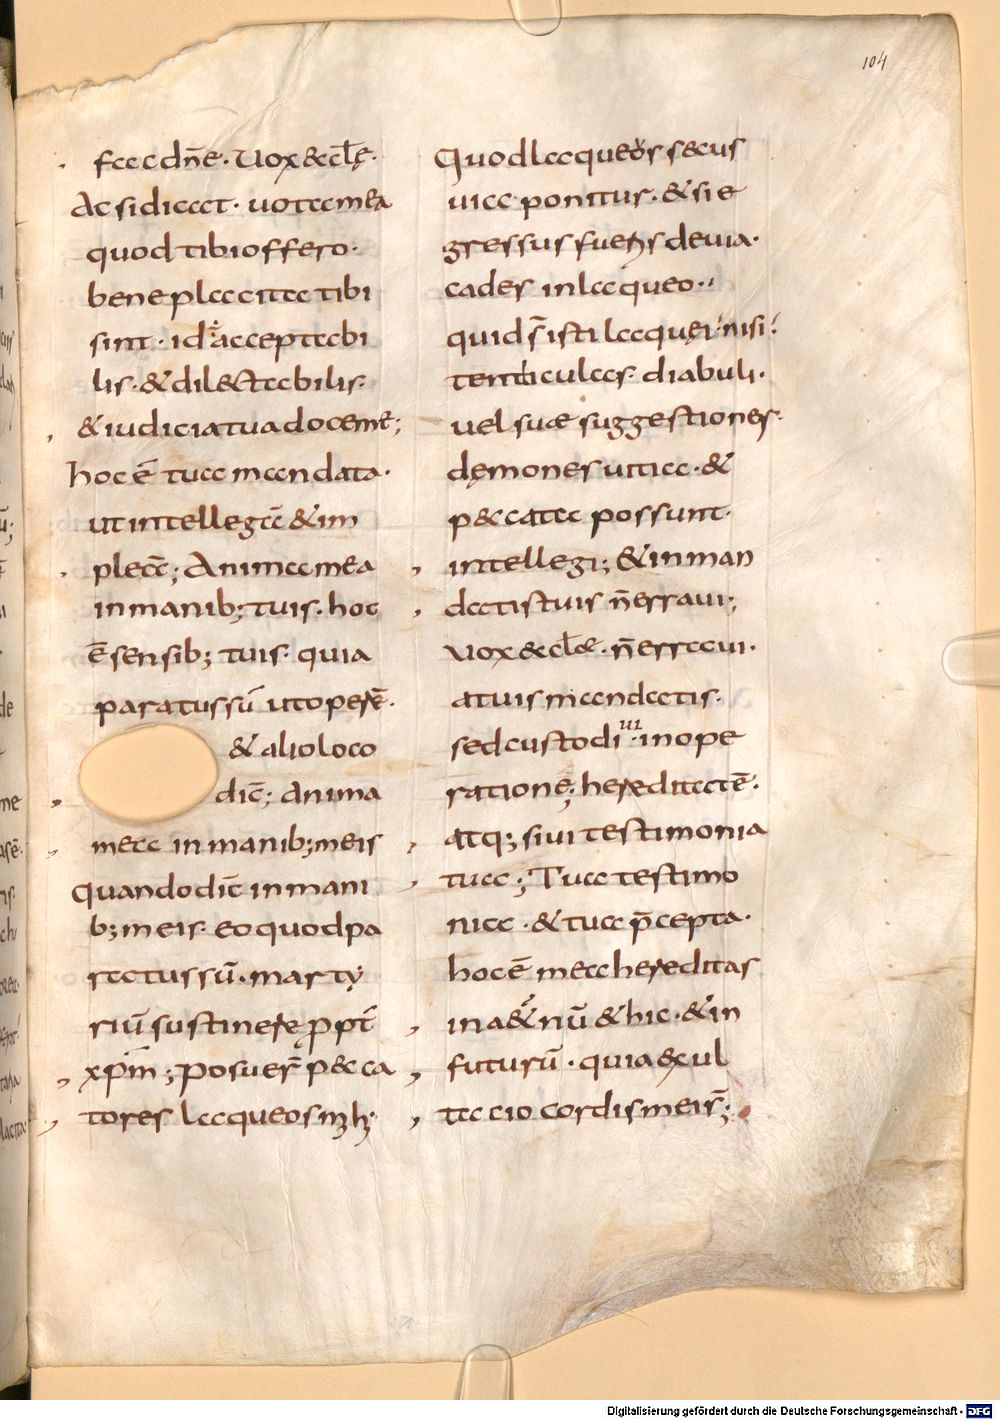 104
fac dn̄e. Uox &cl̄ę.
Ac si dicat. uota mea
quod tibi offero.
bene placita tibi
sint. id ÷ acceptabi
lis. & dilectabilis.
& iudicia tua doce me;
hoc ē tua mandata.
ut intellegā & im
pleā; Anima mea
in manib; tuis. hoc
ē sensib; tuis. quia
paratus sū ut operē.
& alio loco
dic̄; Anima
mea in manib; meis
Quando dic̄ in mani
b; meis. eo quod pa
ratus sū. marty
riū sustinere ꝓpt̄
xp̄m; Posuer̄ pecca
tores laqueos mihi.
Quod laqueos secus
uia ponitus. & si e
gressus fueris deuia.
cades in laqueo..
quid s̄ isti laquei. nisi
temticulas. diabuli.
uel suae suggestiones
dęmones uitia. &
peccata possunt.
intellegi; & in man
datis tuis n̄ erraui;
Uox &cl̄ae. n̄ erraui.
a tuis mandatis.
sed custodiui. in ope
ratione; hereditatē.
atq; siui testimonia
tua; Tua testimo
nia. & tua p̄cepta.
hoc ē mea hereditas
in aet̄nū & hic. & in
futurū. quia exul
tacio cordis mei s̄;
Digitalisierung gefördert durch die Deutsche Forschungsgemeinschaft - DFG